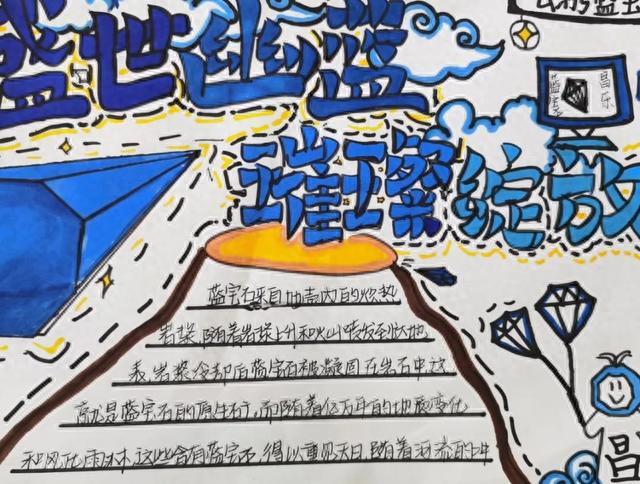 盛世幽蓝
璀璨绽放
蓝宝
昌乐
蓝宝石来自地壳内的炽热
岩浆,随着岩浆上升和火山喷发到达地
表,岩浆冷却后蓝宝石被凝固在岩石中这
就是蓝宝石的原生矿,而随着亿万年的地壳变化
和风化雨林,这些含有蓝宝石,得以重见天日,随着河流的
昌